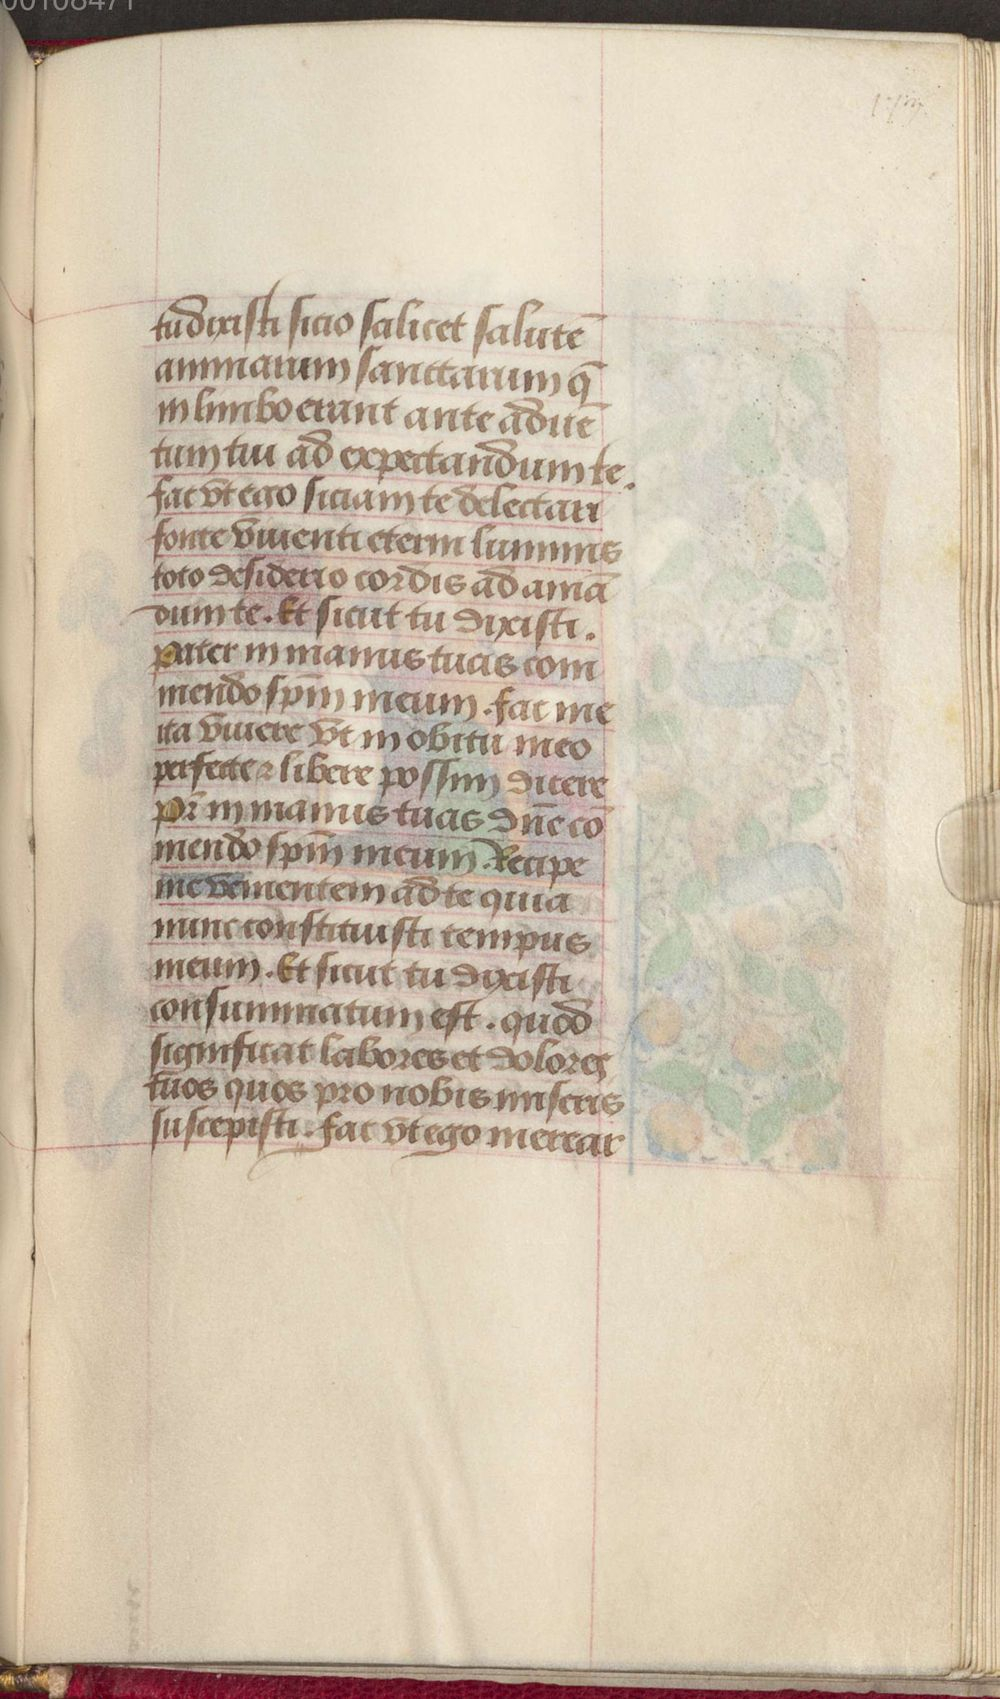 00108471
tu dixisti sicio scilicet salutē
animarum sancttarum q̄
in limbo erant ante aduē
tum tui ad expectandum te.
fac vt ego siciam te delectari
fonte viuenti eterni luminis
toto desiderio cordis ad amā
dum te. Et sicut tu dixisti.
pater in manus tuas com
mendo spm̄ meum. fac me
ita viuere vt in obitu meo
perfecte ⁊ libere possim dicere
pr̄ in manus tuas dn̄e cō
mendo spm̄ meum. Recipe
me venientem ad te quia
nunc constituisti tempus
meum. Et sicut tu dixisti
consummatum est. quod
significat labores et dolores
tuos quos pro nobis miseris
suscepisti. fac vt ego merear